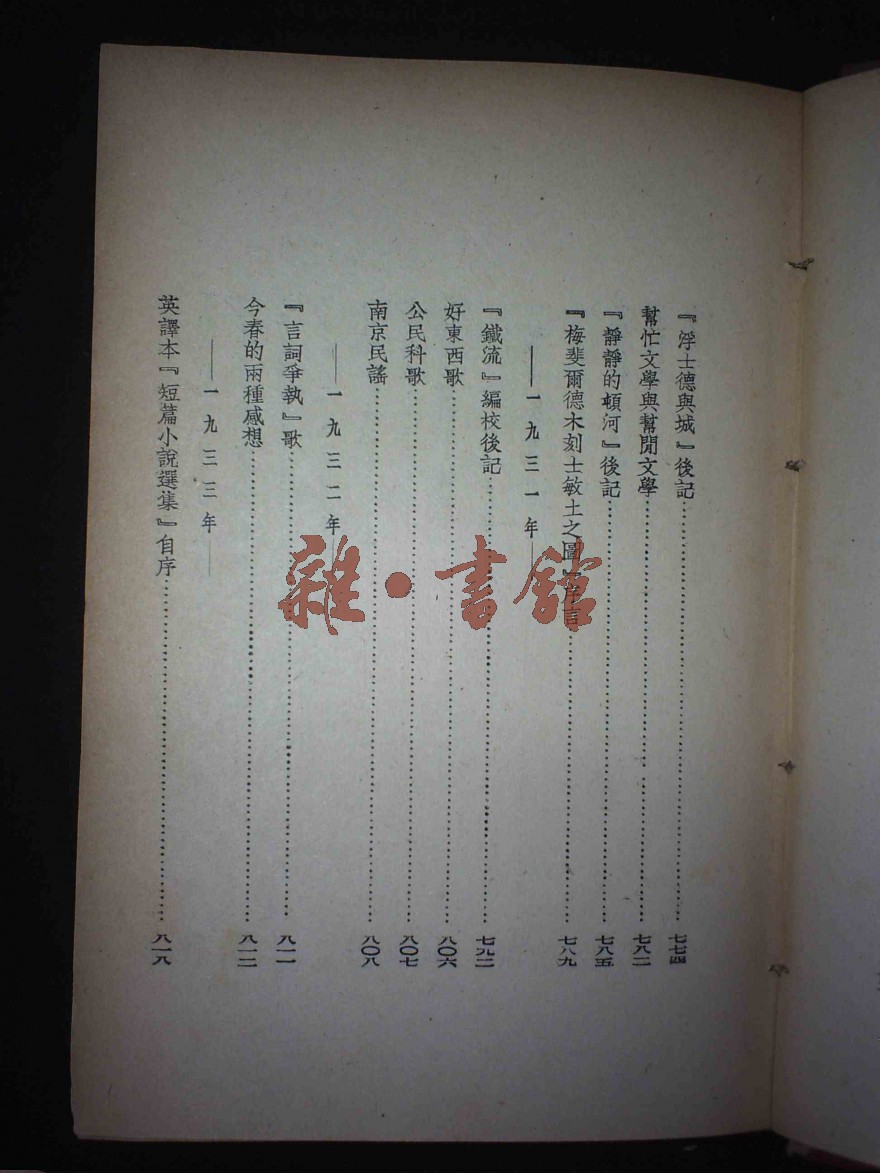 『浮士德與城』後記…………七七四
幫忙文學與幫閒文學…………七八二
『靜靜的頓河』後記…………七八五
『梅斐爾德木刻士敏土之圖』序言…………七八九
——一九三一年——
『鐵流』編校後記…………七九二
好東西歌…………八〇六
公民科歌…………八〇七
南京民謠…………八〇八
——一九三二年——
『言詞爭執』歌…………八一一
今春的兩種感想…………八一二
——一九三三年——
英譯本『短篇小說選集』自序…………八一八
雜·書館